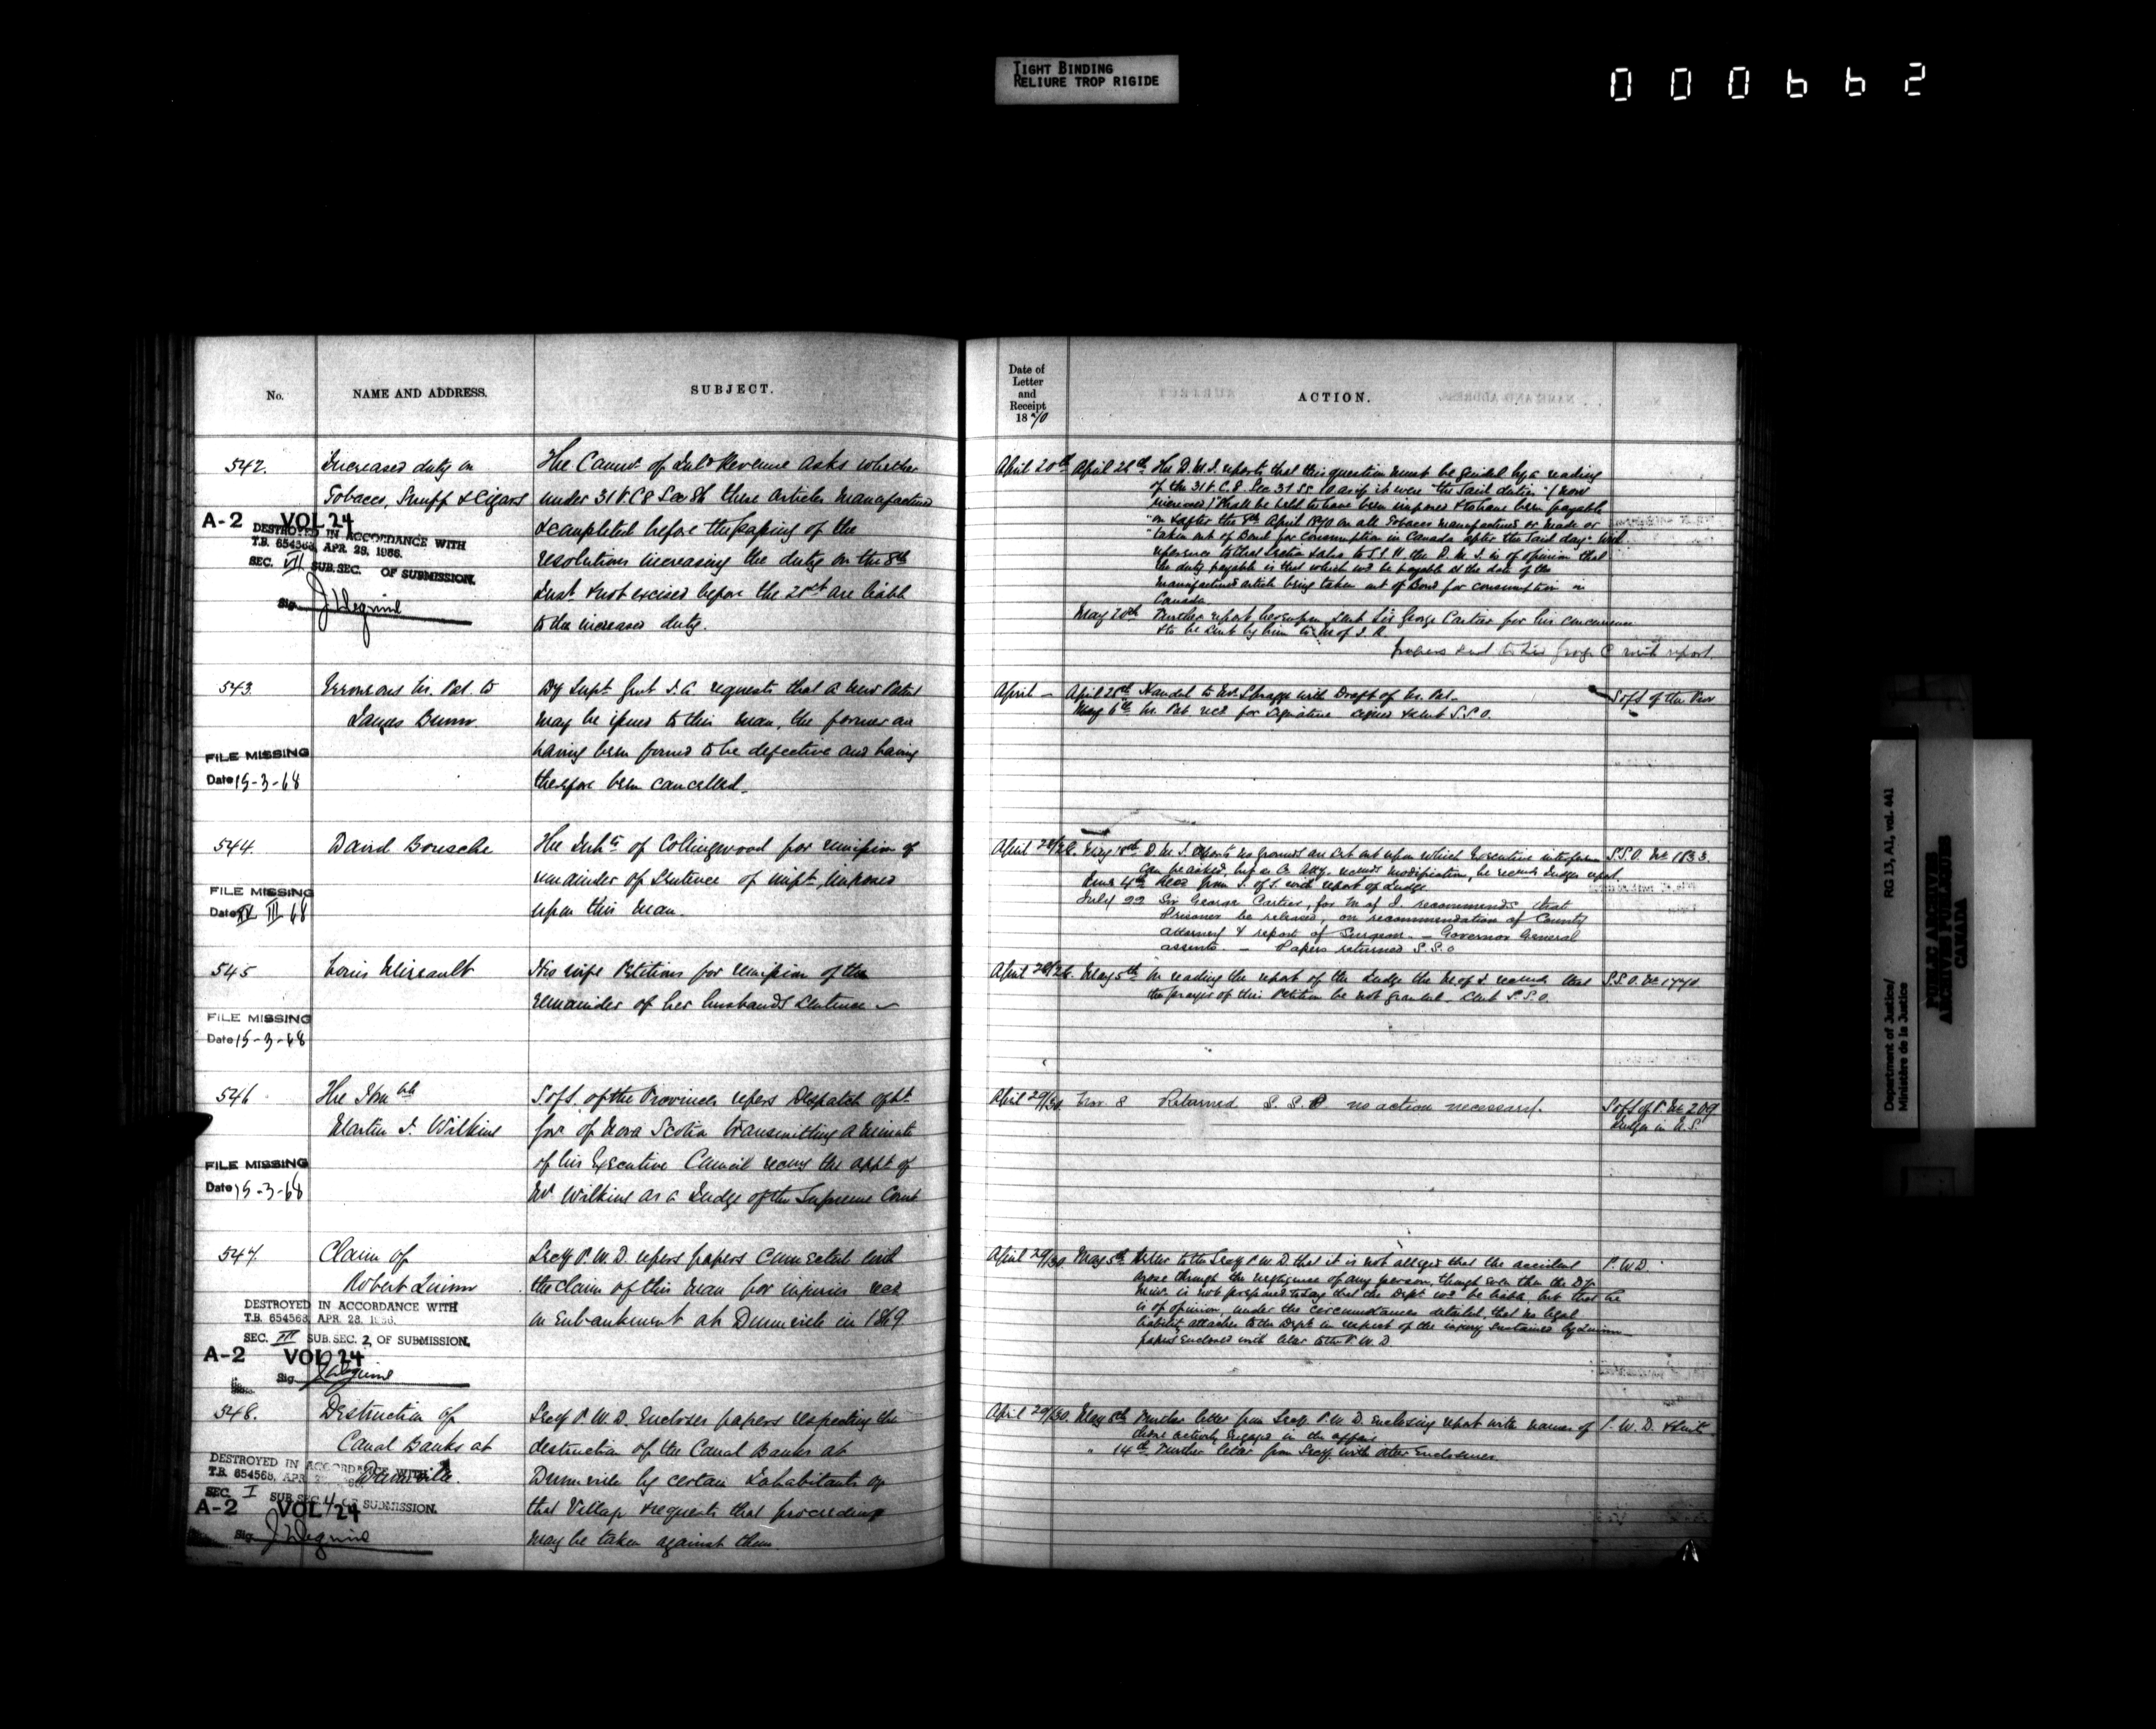 TIGHT BINDING
RELIURE TROP RIGIDE
000662
No.
NAME AND ADDRESS.
SUBJECT.
542.
Increased duty on
Tobacco, Snuff & Cigars
A-2 VOL 24
DESTROYED IN ACCORDANCE WITH
T.B. 654568, APR. 28, 1966.
SEC. VII SUB.SEC. OF SUBMISSION.
Sig.
The Commr. of Inld Revenue asks whether
under 31 V. C 8 Sec 86 these articles manufactured
& completed before the passing of the
resolutions increasing the duty on the 8th
Inst & not excised before the 21st are liable
to the increased duty.
543.
Erroneous Lr. Pat. to
James Bunn
FILE MISSING
Date 15-3-68
Dy Supt Genl I.A. requests that a new Patent
may be issued to this man, the former one
having been found to be defective and having
therefore been cancelled.
544.
David Bousche
FILE MISSING
Date III 68
The Inhts of Collingwood for remission of
remainder of Sentence of impt imposed
upon this man.
545
Louis Mireault
FILE MISSING
Date 15-3-68
His wife Petitions for remission of the
remainder of her husband's sentence
546
The Honble
Martin I. Wilkins
FILE MISSING
Date 15-3-68
S of S. of the Provinces refers Despatch of Lt
Govr of Nova Scotia transmitting a minute
of his Executive Council recomg the appt of
Mr Wilkins as a Judge of the Supreme Court
547.
Claim of
Robert Quinn
DESTROYED IN ACCORDANCE WITH
T.B. 654568, APR. 28, 1966.
SEC. III SUB.SEC. 2, OF SUBMISSION.
A-2 VOL 24
Sig.
Secy P.W.D. refers papers connected with
the claim of this man for injuries recd
on Embankment at Dunnville in 1869
548.
Destruction of
Canal Banks at
Dunnville.
DESTROYED IN ACCORDANCE WITH
T.B. 654568, APR. 28,
SEC. I SUB SEC. 4 OF SUBMISSION.
A-2 VOL 24
Sig.
Secy P.W.D. Encloses papers respecting the
destruction of the Canal Banks at
Dunnville by certain Inhabitants of
that Village & requests that proceedings
may be taken against them
Date of
Letter
and
Receipt
1870
ACTION.
April 20th April 26th The D.M.J. reports that this question must be guided by a reading
of the 31 V. C. 8 Sec. 37 as if it were "the said duties" (now
increased) "shall be held to have been imposed & to have been payable
"on & after the 8th April 1870 on all Tobacco manufactured or made or
"taken out of Bond for consumption in Canada after the said day." With
reference to that section the D.M.J. is of opinion that
the duty payable is that which wd be payable at the date of the
manufactured article being taken out of Bond for consumption in
Canada.
May 20th Further report hereupon sent Sir George Cartier for his concurrence
& to be sent by him to M of I.R.
papers sent to Sir George C with report.
April — April 28th Handed to Mr. Shragge with Draft of Lr. Pat.
May 6th Lr. Pat recd for signature signed & sent S.S.O.
S of S of the Prov
April 28/ May 18th D.M.J. reports no grounds are set out upon which Executive interference
can be asked, but as Co. Atty. recomds modification, he recomds Judges report.
June 4th Recd from S. of S. with report of Judge
July 22 Sir George Cartier, for M of J. recommends that
Prisoner be released, on recommendation of County
attorney & report of Surgeon. — Governor General
assents. — Papers returned S.S.O
S.S.O. No 1833.
May 5th On reading the report of the Judge the M of J. recomds that
the prayer of this Petition be not granted. Sent S.S.O.
April 29/30 Nov 8 Returned S.S.P no action necessary.
S of S of P. No 209
Judges in N.S.
April 29/30. May 5th Letter to the Secy P.W.D. that it is not alleged that the accident
arose through the negligence of any person, though even then the Dy
Minr. is not prepared to say that the Dept wd be liable, but that he
is of opinion, under the circumstances detailed, that no legal
liability attaches to the Dept. in respect of the injury sustained by Quinn
papers enclosed with letter to the P.W.D.
P.W.D.
April 29/30. May 5th Further letter from Secy P.W.D. enclosing report with names of
those actively engaged in the affair
" 14th Further letter from Secy with other Enclosures.
P.W.D.
Department of Justice/
Ministère de la Justice
RG 13, A1, vol. 441
PUBLIC ARCHIVES
ARCHIVES PUBLIQUES
CANADA